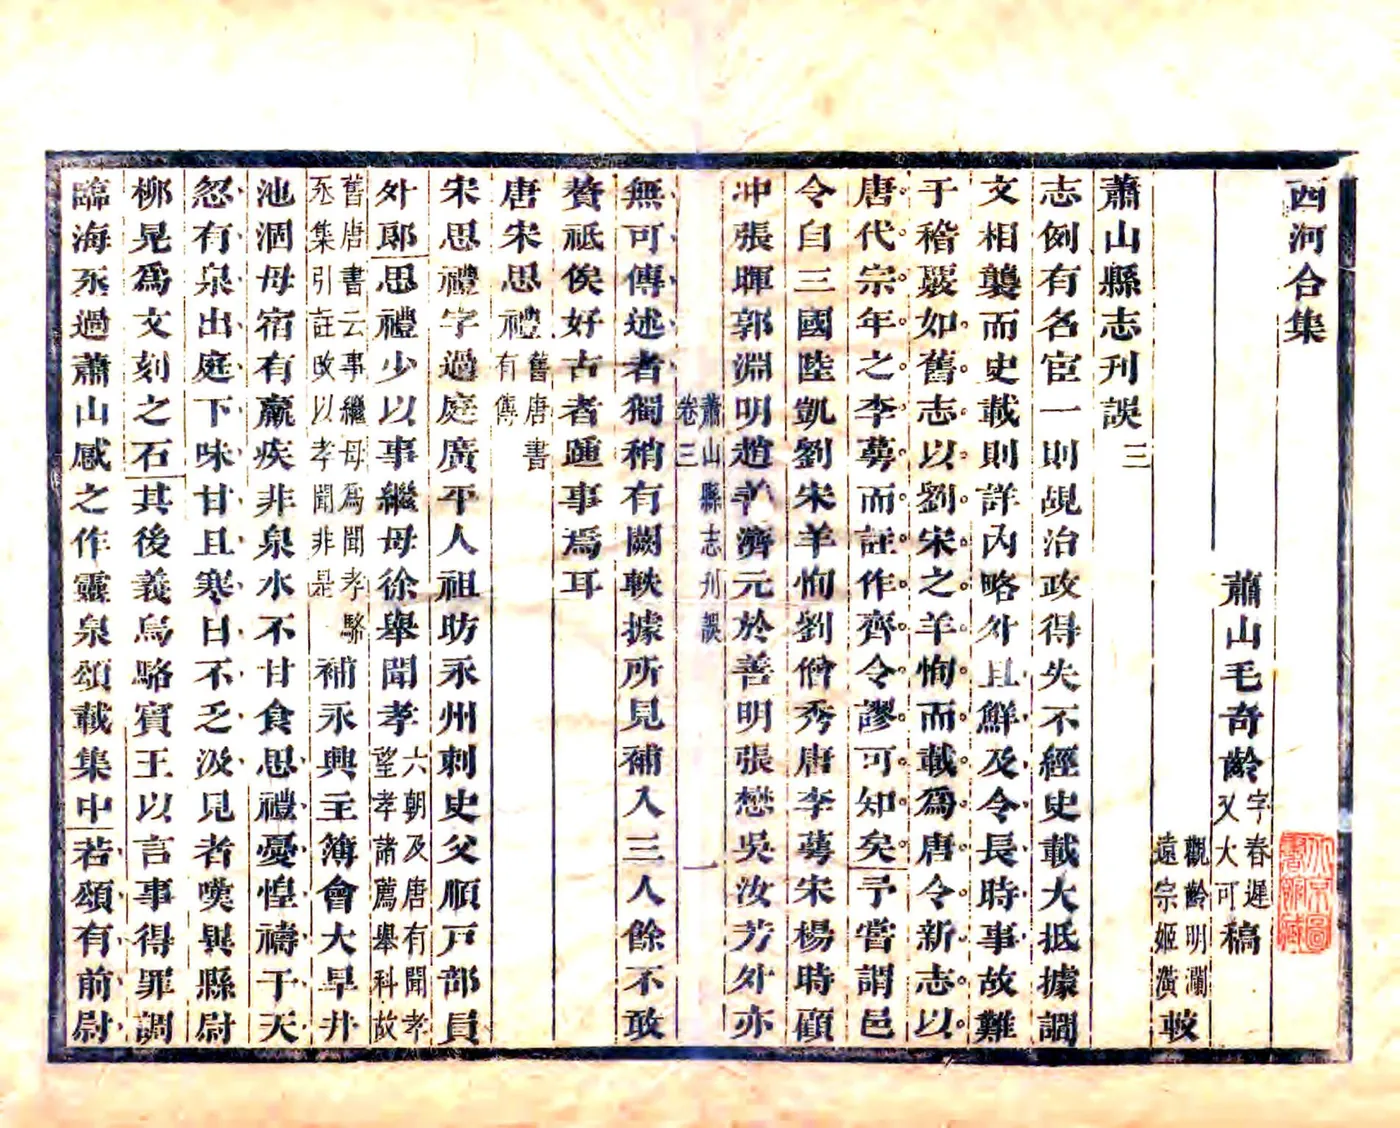 西河合集
蕭山毛奇齡字春遲又大可稿
觀齡明瀾遠宗姬潢較
蕭山縣志刊誤三
志例有名宦一則覘治政得失不經史載大抵據調
文相襲而史載則詳內略外且鮮及令長時事故難
于稽覈如舊志以劉宋之羊恂而載為唐令新志以
唐代宗年之李蕚而註作齊令謬可知矣予嘗謂邑
令自三國陸凱劉宋羊恂劉僧秀唐李蕚宋楊時顧
冲張暉郭淵明趙善濟元於善明張懋吳汝芳外亦
蕭山縣志刋誤卷三 一
無可傳述者獨稍有闕軼據所見補入三人餘不敢
贅祗俟好古者踵事焉耳
唐宋思禮舊唐書有傳
宋思禮字過庭廣平人祖昉永州刺史父順戸部員
外郞思禮少以事繼母徐舉聞孝六朝及唐有聞孝望孝諸薦舉科故
舊唐書云事繼母爲聞孝駱丞集引註改以孝聞非是補永興主簿會大旱井
池涸母宿有羸疾非泉水不甘食思禮憂惶禱于天
忽有泉出庭下味甘且寒日不乏汲見者嘆異縣尉
柳晃爲文刻之石其後義烏駱賓王以言事得罪調
臨海丞過蕭山感之作靈泉頌載集中若頌有前尉